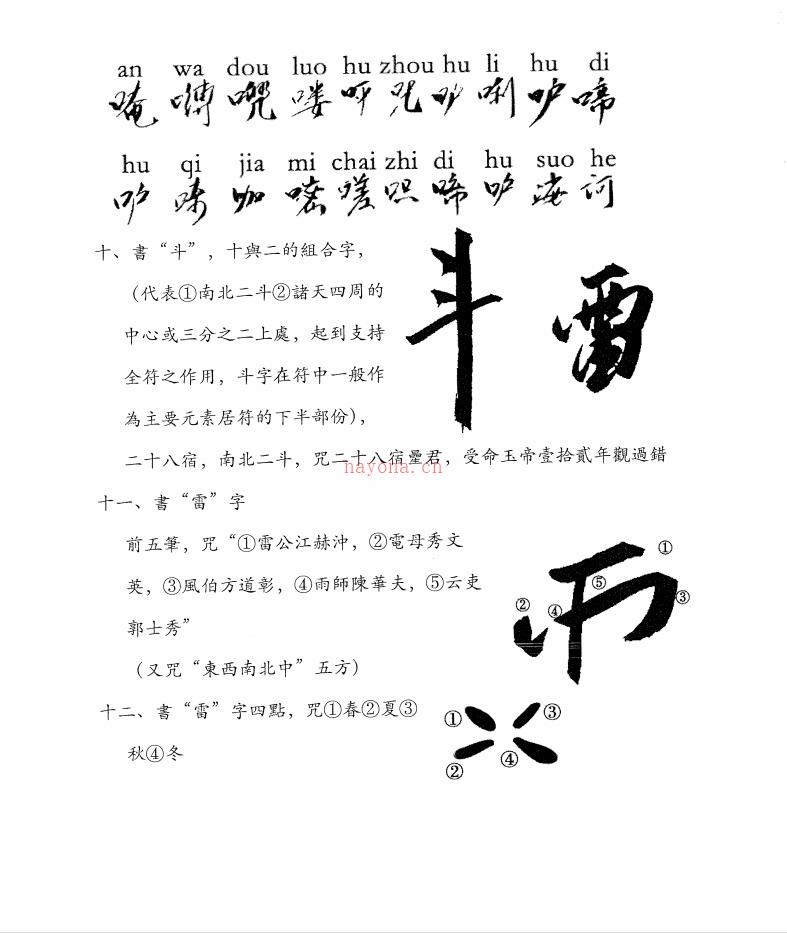 an wa dou luo hu zhou hu li hu di
hu qi jia mi chai zhi di hu suo he
十、書“斗”，十與二的組合字，
（代表①南北二斗②諸天四周的
中心或三分之二上處，起到支持
全符之作用，斗字在符中一般作
為主要元素居符的下半部份），
二十八宿，南北二斗，咒二十八宿星君，受命玉帝壹拾貳年觀過錯
nayona.cn
斗 雷
十一、書“雷”字
前五筆，咒“①雷公江赫沖，②電母秀文
英，③風伯方道彰，④雨師陳華夫，⑤云吏
郭士秀”
（又咒“東西南北中”五方）
① ② ③ ④ ⑤
十二、書“雷”字四點，咒①春②夏③
秋④冬
① ③
② ④